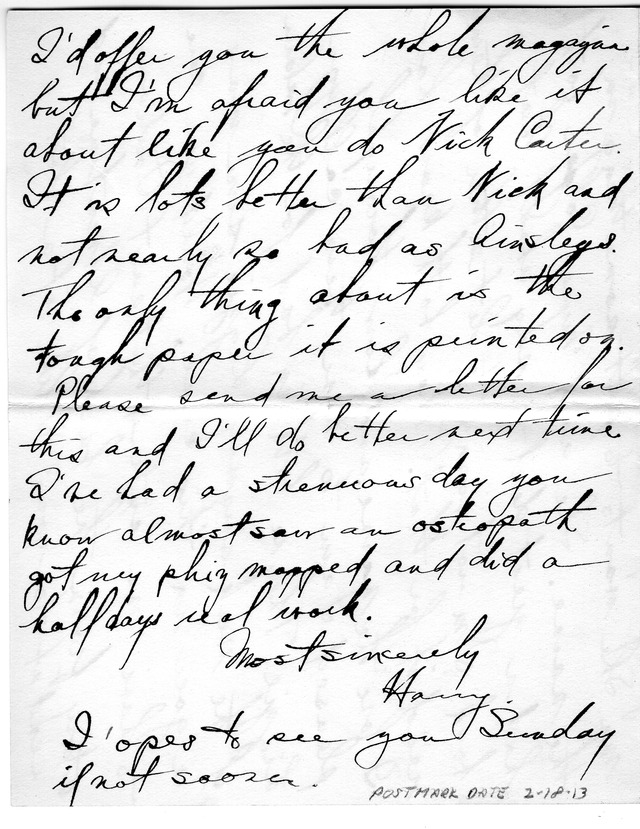 I'd offer you the whole magazine
but I'm afraid you like it
about like you do Nick Carter.
It is lots better than Nick and
not nearly so bad as Ainslegs.
The only thing about is the
tough paper it is printed on.
Please send me a letter for
this and I'll do better next time
I've had a strenuous day you
know almost saw an osteopath
got my phiz mapped and did a
half days real work.
Most sincerely
Harry.
I 'opes to see you Sunday
if not sooner.
POSTMARK DATE 2-18-13